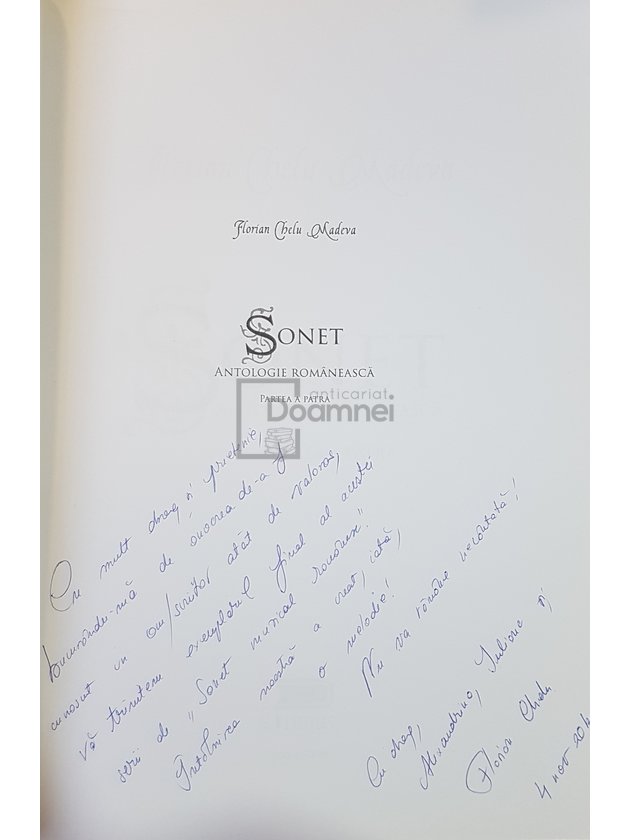 Florian Chelu Madeva
SONET
ANTOLOGIE ROMÂNEASCĂ
PARTEA A PATRA
anticariat
Doamnei
Cu mult drag și prietenie,
bucurându-mă de onoarea de-a fi
cunoscut un om/scriitor atât de valoros,
vă trimitem exemplarul final al acestei
serii de "Sonet muzical românesc".
Întâlnirea noastră a creat, iată,
o melodie!
Nu va rămâne necântată!
Cu drag,
Alexandrina, Iuliana și
Florian Chelu
4 nov